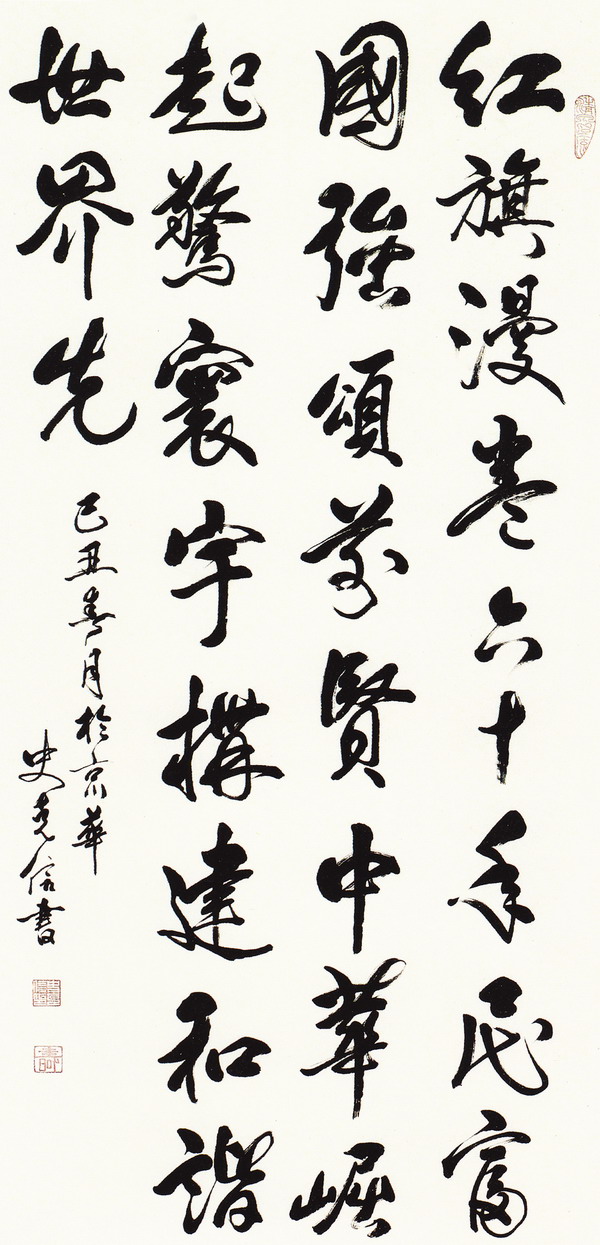 红旗漫卷六十年民富
國強頌萬賢中華崛
起驚寰宇構建和諧
世界先
己丑春月於京華
史克信書